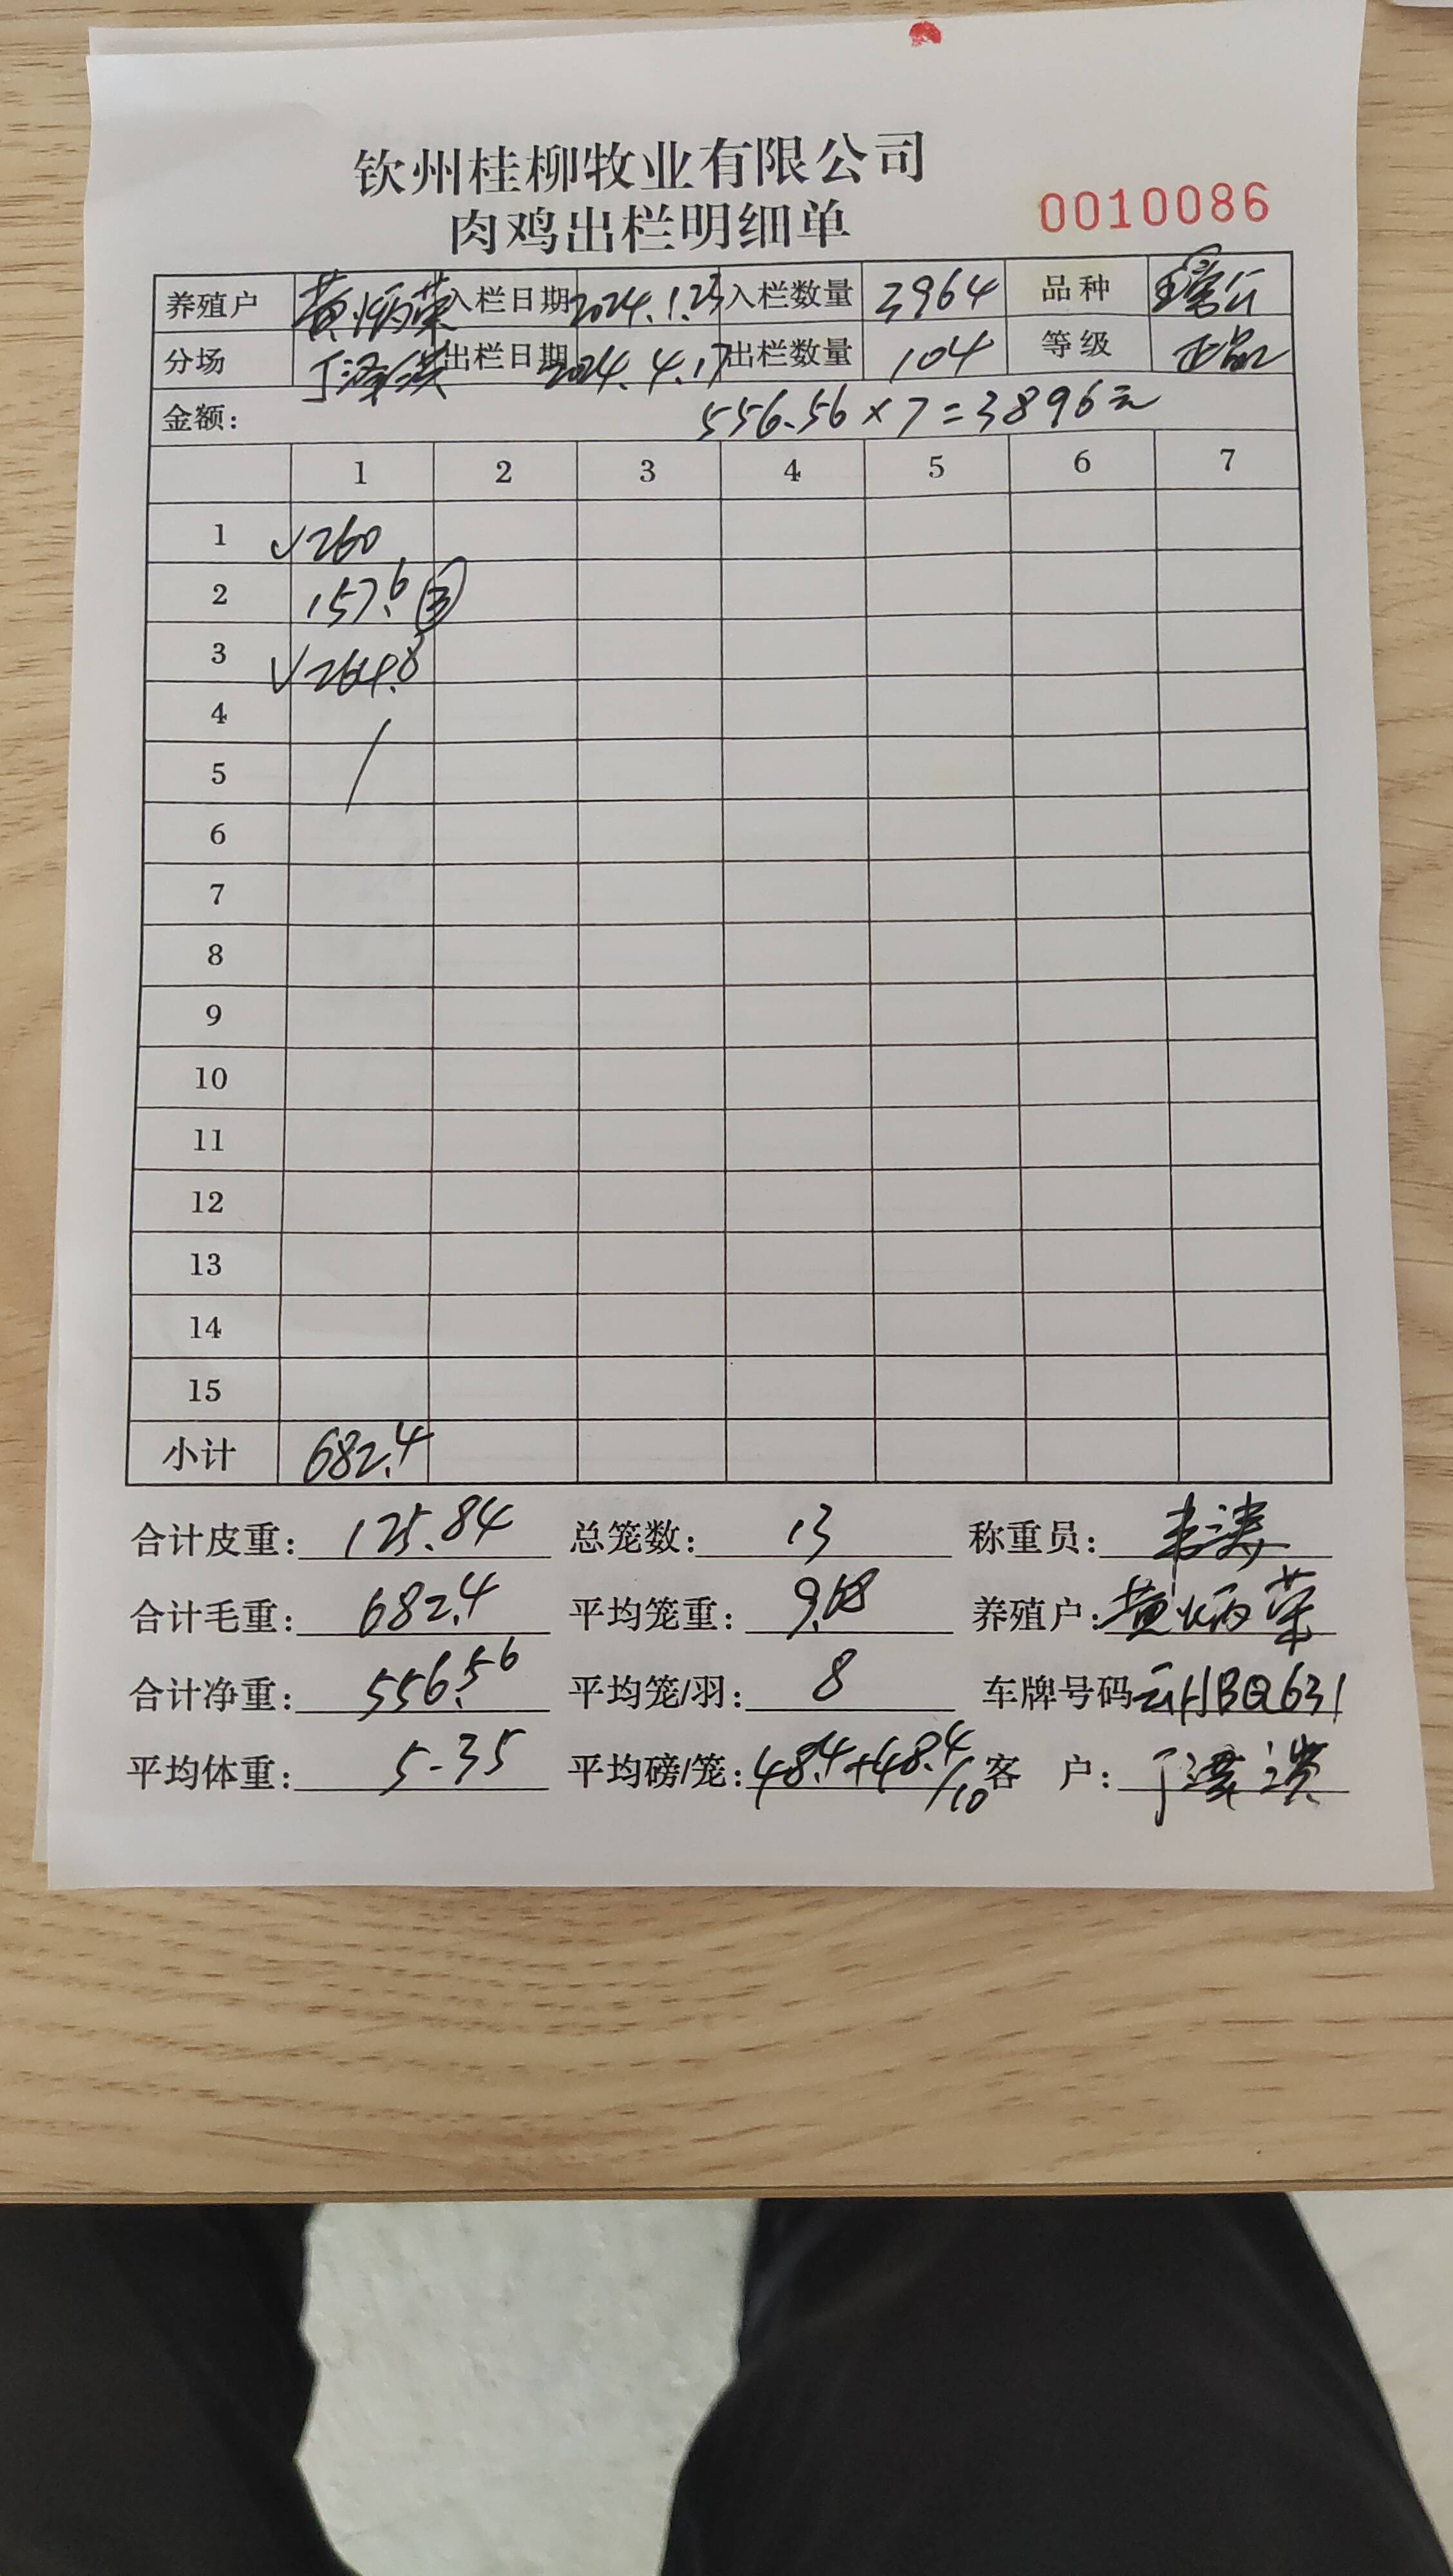 钦州桂柳牧业有限公司
肉鸡出栏明细单
0010086
养殖户 黄炳荣 入栏日期 2024.1.23 入栏数量 3964 品种
分场 出栏日期 2024.4.17 出栏数量 104 等级 正品
金额: 556.56×7=3896元
1 2 3 4 5 6 7
1 √260
2 157.6 ③
3 √264.8
4
5
6
7
8
9
10
11
12
13
14
15
小计 682.4
合计皮重: 125.84 总笼数: 13 称重员: 韦涛
合计毛重: 682.4 平均笼重: 9.68 养殖户: 黄炳荣
合计净重: 556.56 平均笼/羽: 8 车牌号码 BQ631
平均体重: 5-35 平均磅/笼: 48.4+48.4/10 客 户: